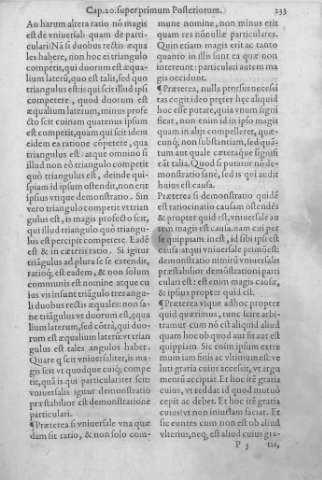 Cap.20. superprimum Posteriorum. 233
An harum altera ratio nō magis
est de vniuersali quam de parti-
culari: Nā si duobus rectis æqua
les habere, non hoc ei triangulo
competit, qui duorum est æqua-
lium laterū, quo est talis, sed quo
triangulus est: is qui scit illud ipsi
competere, quod duorum est
æqualium laterum, minus profe
cto scit cuinam quatenus ipsum
est competit, quam qui scit idem
eidem ea ratione cōpetere, qua
triangulus est. atque omnino si
illud non eō triangulo competit
quō triangulus est, deinde qui-
spiam id ipsum ostendit, non erit
ipsius vtique demonstratio. Sin
vero triangulo competit vt trian
gulus est, is magis profecto scit,
qui illud triangulo quō triangu-
lus est percipit competere. Eadē
est & in cæteris ratio. Si igitur
triāgulus ad plura se se extendit,
ratioq́; est eadem, & non solum
communis est nomine atque cu
ius vis insunt triāgulo tres angu-
li duobus rectis æquales: non sa-
ne triāgulus vt duorum est, equa
lium laterum, sed cōtrà, qui duo-
rum est æqualium laterū: vt trian
gulus est tales angulos habet.
Quare q scit vniuersaliter, is ma-
gis scit vt quodque cuiq́; compe
tit, quā is qui particulariter scit:
vniuersalis igitur demonstratio
præstabilior est demonstratione
particulari.
¶ Præterea si vniuersale vna quæ
dam sit ratio, & non solo com-
mune nomine, non minus erit
quam res nōnullæ particulares.
Quin etiam magis erit ac tanto
quanto in illis sunt ea quæ non
intereunt: particularia autem ma
gis occidunt.
¶ Præterea, nulla prorsus necessi
tas cogit ideo preter hęc aliquid
hoc esse putare, quia vnum signi
ficat, non enim id in ipso magis
quam in alijs compelleret, quæ-
cunq́; non substantiam, sed quā-
tum aut quale cæteraque signifi
cāt talia. Quod si putatur nō de-
monstratio sane, sed is qui audit
huius est causa.
Præterea si demonstratio quidē
est ratiocinatio causam ostendēs
& propter quid est, vniuersale au
tem magis est causa. nam cui per
se quippiam inest, id sibi ipsi est
causa: atqui vniuersale primū est:
demonstratio nimirū vniuersalis
præstabilior demōstrationi parti
culari est: est enim magis causæ,
& ipsius propter quid est.
¶ Præterea vsque adhoc propter
quid quærimus, tunc scire arbi-
tramur cum nō est aliquid aliud
quam hoc ob quod aut fit aut est
quippiam. Sic enim ipsum extre
mum iam finis ac vltimum est: ve
luti gratia cuius accessit, vt argu
mentū accipiat. Et hoc itē gratia
cuius, vt reddat id quod mutuō
cepit ac debet. Et hoc itē gratia
cuius: vt non iniustam faciat. Et
sic euntes cum non est ob aliud
vlterius, neq́; est aliud cuius gra-
P 5 tia,